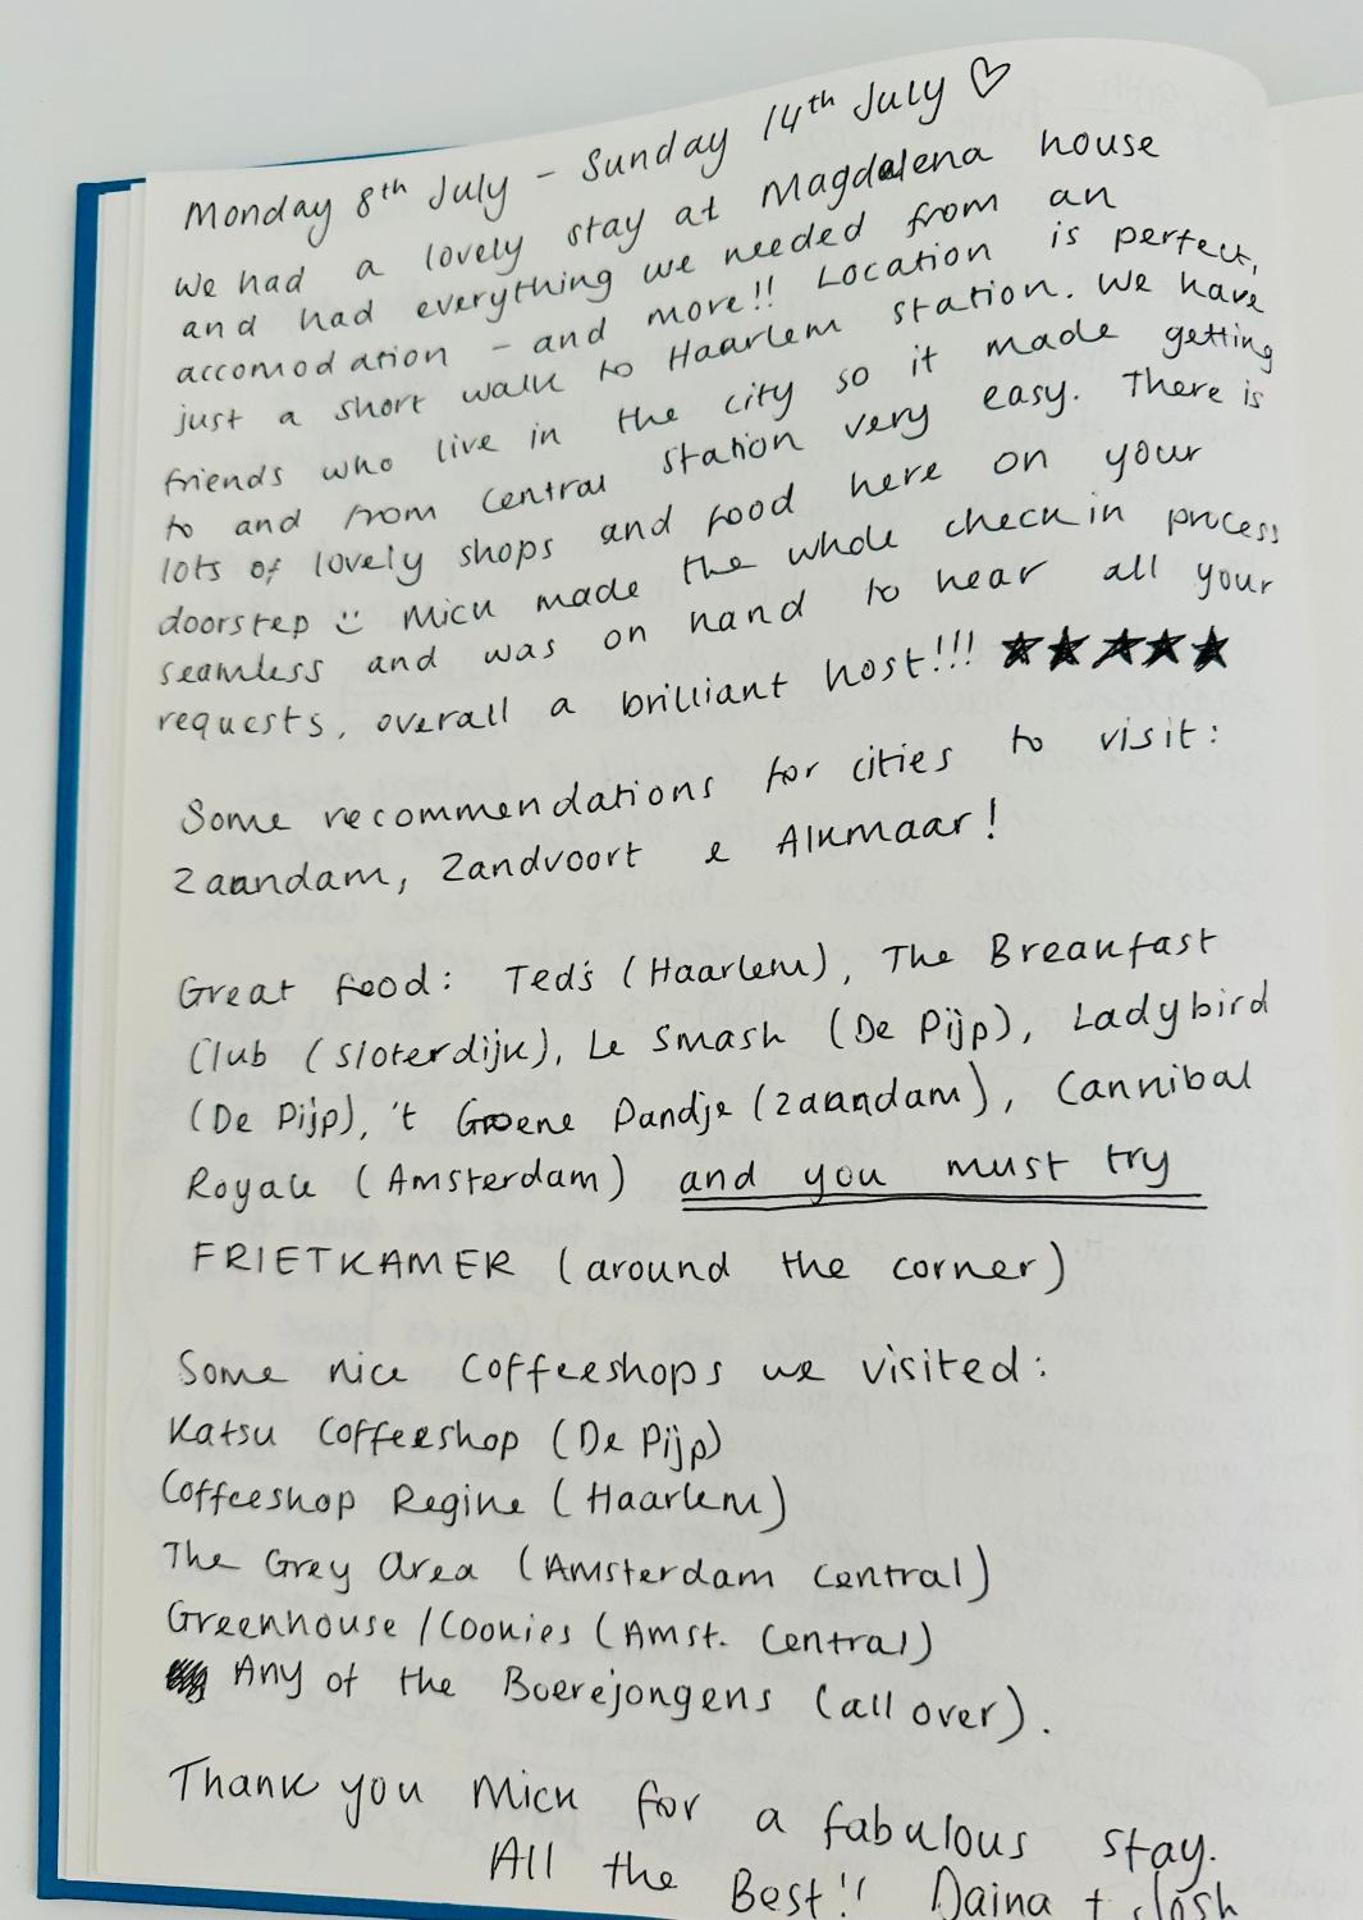 Monday 8th July - Sunday 14th July ♡
We had a lovely stay at Magdalena house
and had everything we needed from an
accomodation - and more!! Location is perfect,
just a short walk to Haarlem station. We have
friends who live in the city so it made getting
to and from Central station very easy. There is
lots of lovely shops and food here on your
doorstep :) Mick made the whole check in process
seamless and was on hand to hear all your
requests, overall a brilliant host!!! ★★★★★
Some recommendations for cities to visit:
Zaandam, Zandvoort & Alkmaar!
Great food: Ted's (Haarlem), The Breakfast
Club (Sloterdijk), Le Smash (De Pijp), Ladybird
(De Pijp), 't Groene Pandje (Zaandam), Cannibal
Royale (Amsterdam) and you must try
FRIETKAMER (around the corner)
Some nice coffeeshops we visited:
Katsu Coffeeshop (De Pijp)
Coffeeshop Regine (Haarlem)
The Grey Area (Amsterdam Central)
Greenhouse / Cookies (Amst. Central)
Any of the Boerejongens (all over).
Thank you Mick for a fabulous stay.
All the Best!! Daina + Josh